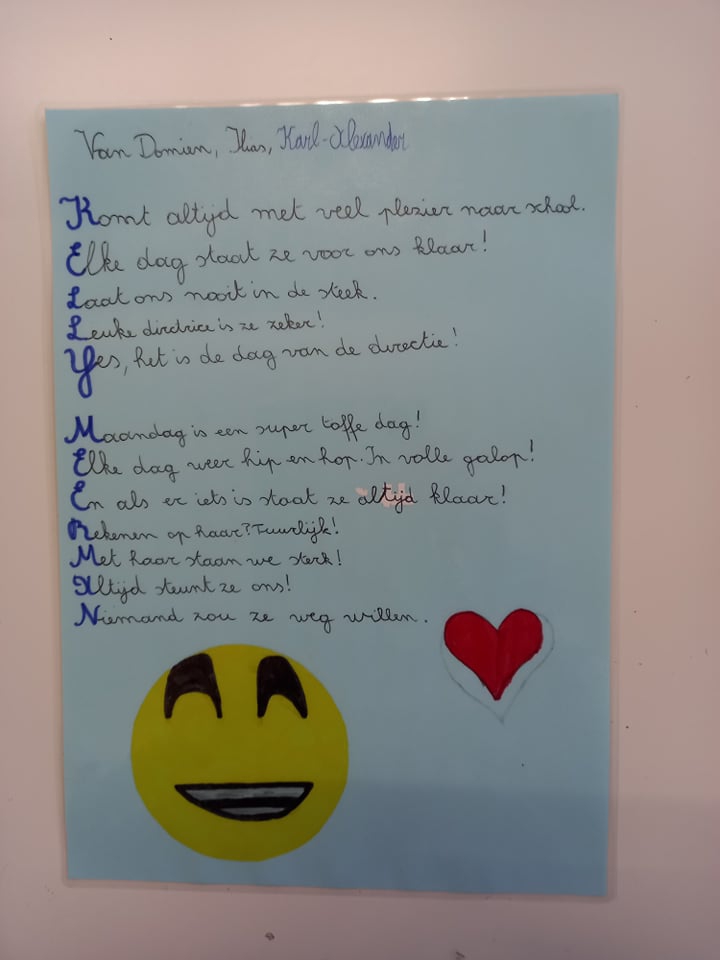 Van Domien, Ilias, Karl-Alexander
Komt altijd met veel plezier naar school.
Elke dag staat ze voor ons klaar!
Laat ons nooit in de steek.
Leuke dirdrice is ze zeker!
Yes, het is de dag van de directie!
Maandag is een super toffe dag!
Elke dag weer hip en hop. In volle galop!
En als er iets is staat ze altijd klaar!
Rekenen op haar? Tuurlijk!
Met haar staan we sterk!
Altijd steunt ze ons!
Niemand zou ze weg willen.